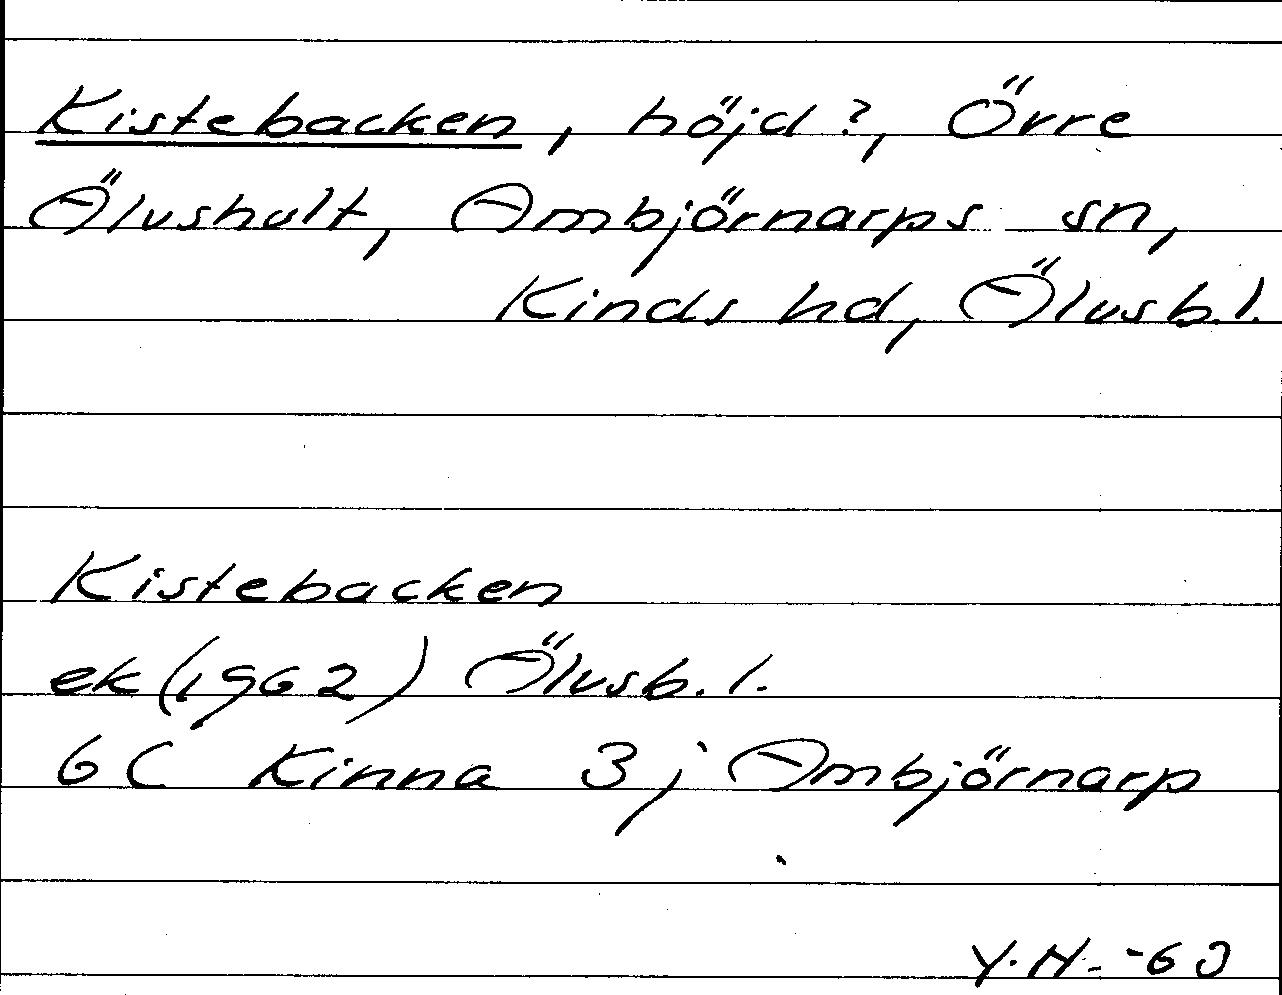 Kistebacken, höjd?, Övre
Älvshult, Ambjörnarps sn,
Kinds hd, Älvsb. l.
Kistebacken
ek (1962) Älvsb. l.
6 C Kinna 3 j Ambjörnarp
Y. N. -63